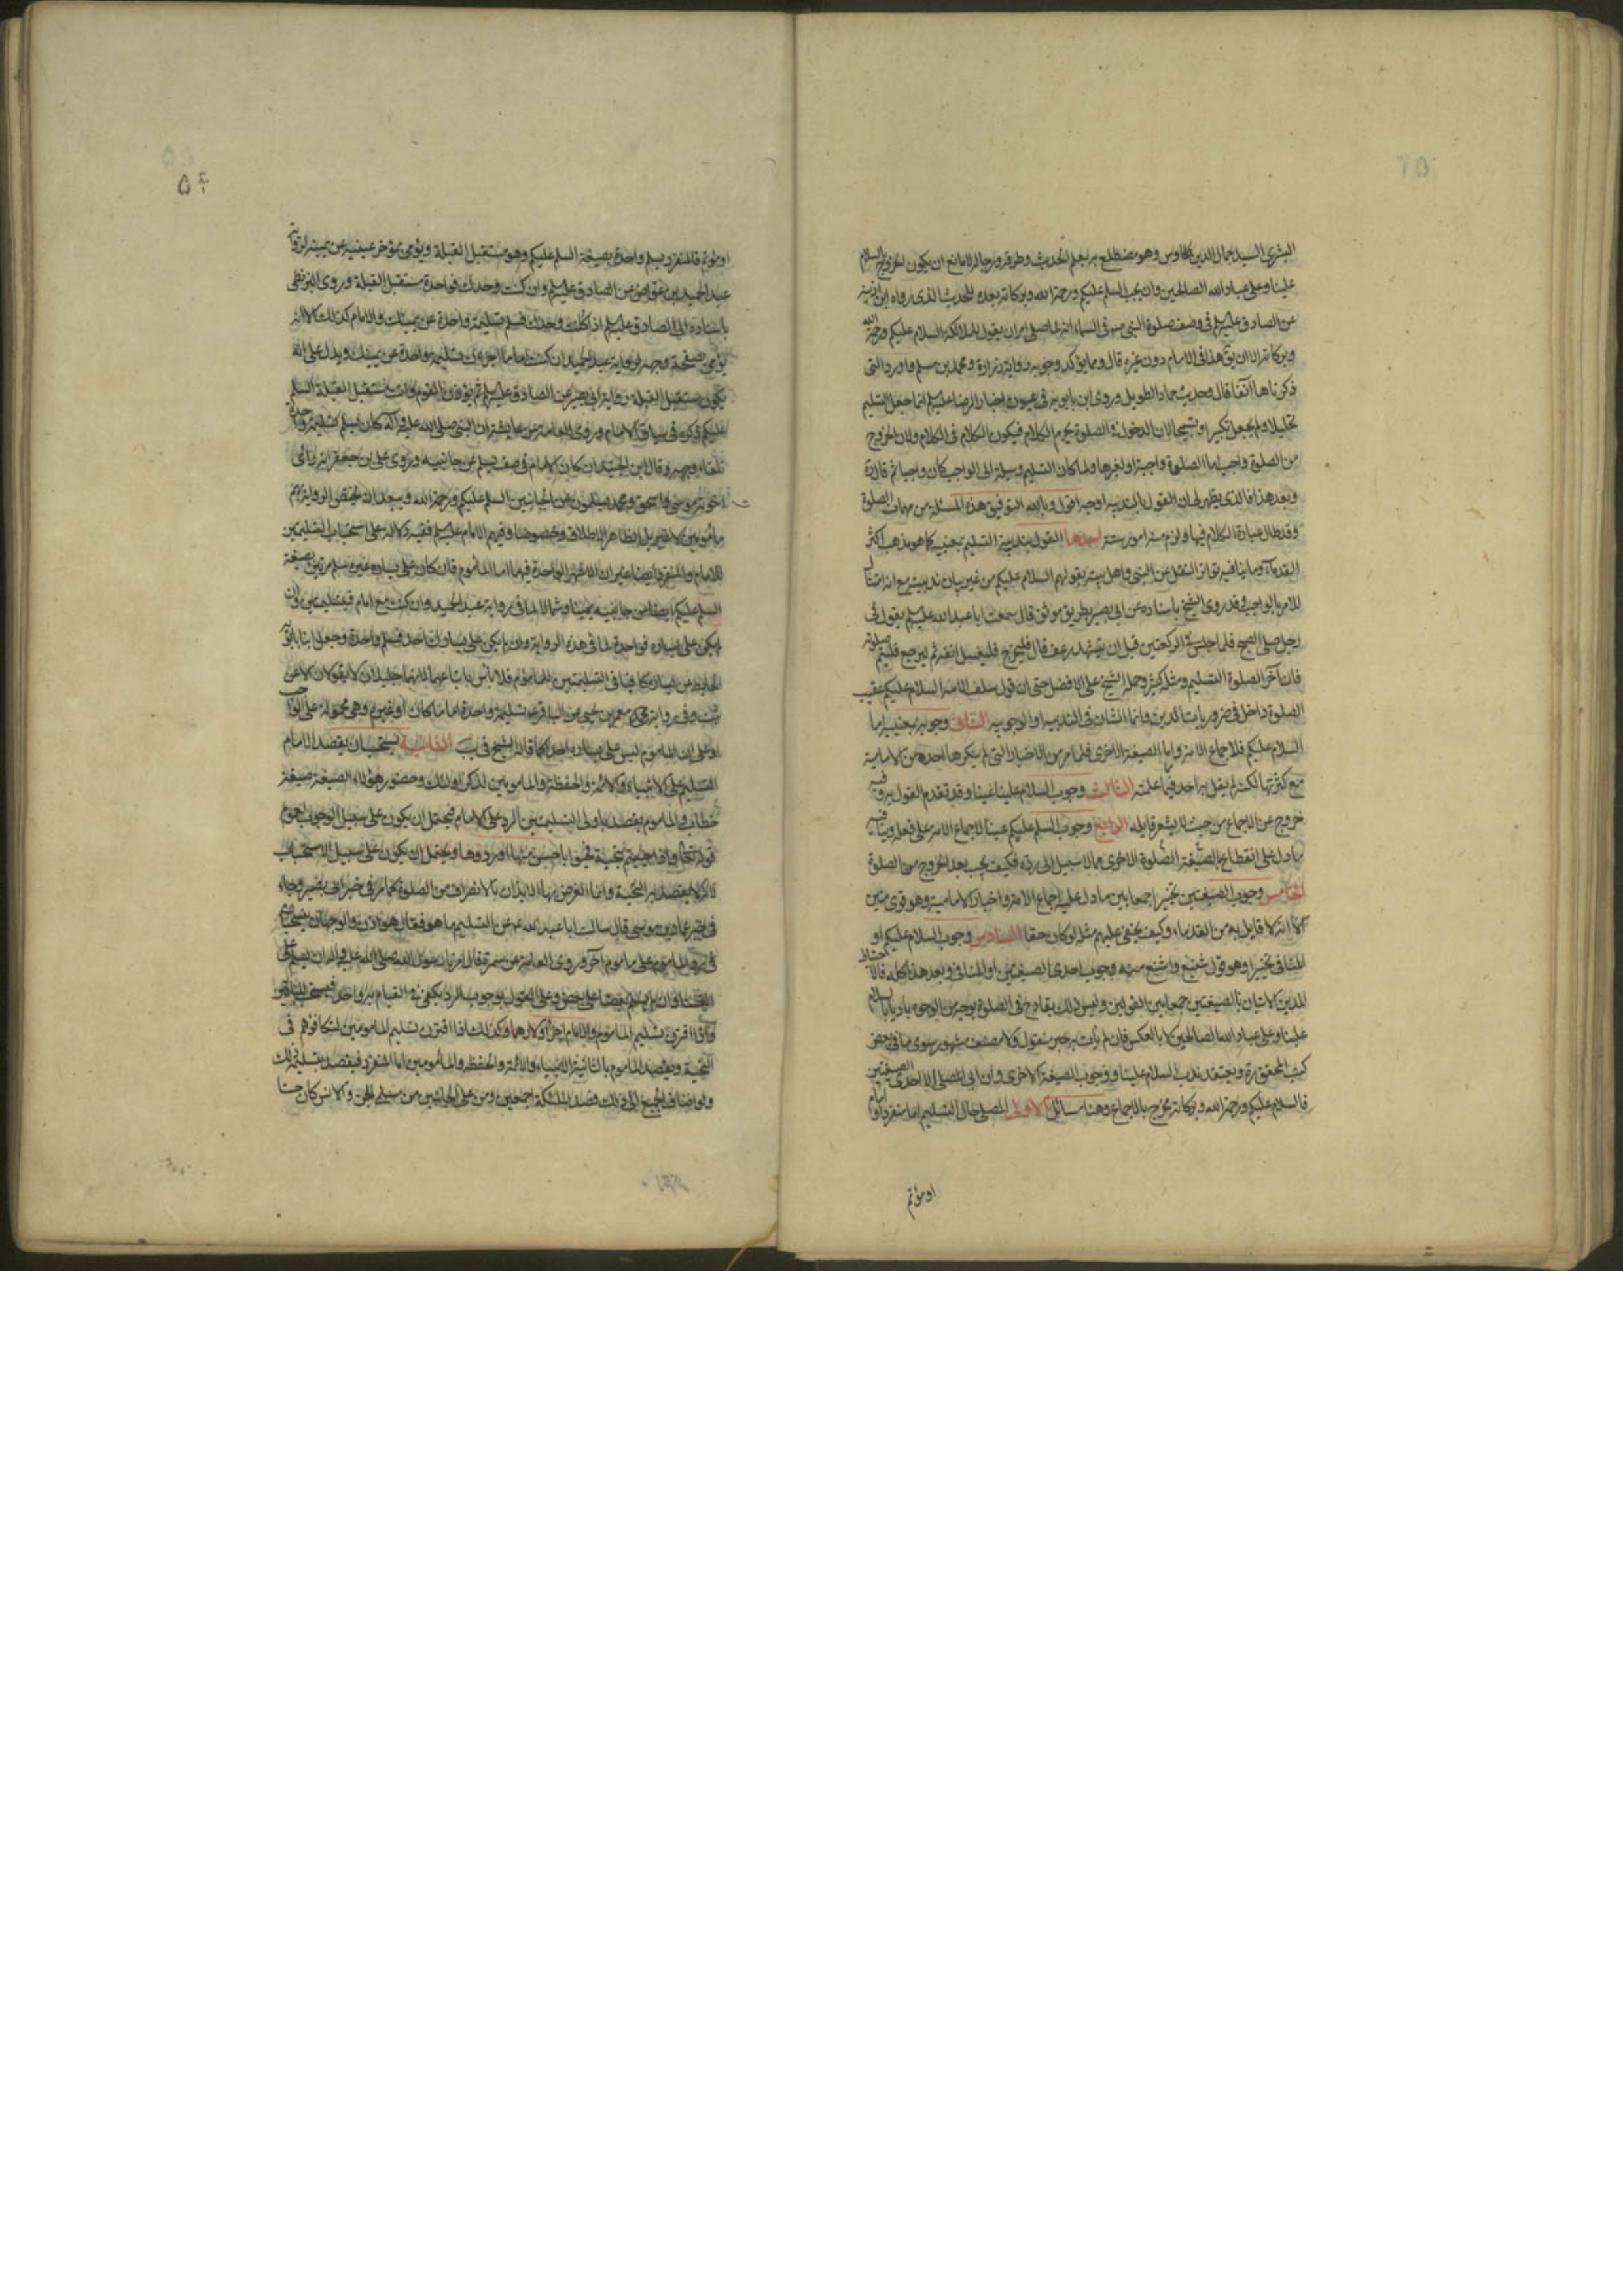 البشرى السيد جمال الدين بن طاوس وهو مضطلع بعلم الحديث وطرقه ورجاله لا مانع ان يكون الخروج بالسلام
علينا وعلى عباد الله الصالحين وان يجب السلم عليكم ورحمة الله وبركاته بعده للحديث الذى رواه ابن اذينه
عن الصادق عليه السلم فى وصف صلوة النبى ص فى السماء انه لما صلى امران يقول للملائكة السلام عليكم ورحمة الله
وبركاته الا ان يق هذا فى الامام دون غيره قال ومما يؤكد وجوبه رواية زرارة ومحمد بن مسلم واورد التى
ذكرناها آنفا قال وحديث حماد الطويل وروى ابن بابويه فى عيون اخبار الرضا عليه السلم انما جعل التسليم
تحليلا ولم يجعل تكبيرا او تسبيحا لان الدخول فى الصلوة يحرم الكلام فيكون الكلام فى الكلام ولان الخروج
من الصلوة واجب اما الصلوة واجبة او لغيرها ولما كان التسليم وسيلة الى الواجب كان واجبا ثم قال ره
وبعد هذا فالذى يظهر لى ان القول بالندبيه اوجه اقول وبالله التوفيق هذه المسئلة من مهمات الصلوة
وقد طال عبارة الكلام فيها ولزم منه امور ستة احدها القول بندبية التسليم بمعنييه كما هو مذهب اكثر
القدماء وما ينافيه تواتر النقل عن النبى واهل بيته بقولهم السلام عليكم من غير بيان ندبيته مع انه امتثال
للامر بالواجب وقد روى الشيخ باسناده عن ابى بصير بطريق موثق قال سمعت ابا عبد الله عليه السلم يقول فى
رجل صلى الصبح فلما جلس فى الركعتين قبل ان يتشهد رعف قال فليخرج فليغسل انفه ثم ليرجع فليتم صلوته
فان آخر الصلوة التسليم ومثله كثير وحمله الشيخ على الافضل حتى ان قول سلف الامة السلام عليكم عقيب
الصلوة داخل فى ضروريات الدين وانما الشان فى الندبيه او الوجوبيه الثانى وجوبه بمعنييه اما
السلام عليكم فلاجماع الامة واما الصيغة الاخرى فلما مر من الاخبار التى لم ينكرها احد من الامامية
مع كثرتها لكنه لم يقل به احد فيما علمته الثالث وجوب السلام علينا عينا وقد تقدم القول به وفيه
خروج عن الاجماع من حيث لا يشعر قايله الرابع وجوب السلم عليكم عينا لاجماع الامة على فعله وينافيه
ما دل على انقطاع الصلوة بالصيغة الاخرى مما لا سبيل الى رده فكيف يجب بعد الخروج من الصلوة
الخامس وجوب الصيغتين تخييرا جمعا بين ما دل عليه اجماع الامة واخبار الامامية وهو قوى متين
الا انه لا قايل به من القدماء وكيف يخفى عليهم مثله لو كان حقا السادس وجوب السلام عليكم او
المنافى تخييرا وهو قول شنيع واشنع منه وجوب احدى الصيغتين او المنافى وبعد هذا كله فالاحتياط
للدين الاتيان بالصيغتين جمعا بين القولين وليس ذلك بقادح فى الصلوة بوجه من الوجوه باديا بالسلام
علينا وعلى عباد الله الصالحين لا بالعكس فان لم يأت به خبر منقول ولا مصنف مشهور سوى ما فى بعض
كتب المحقق ره ويعتقد ندب السلام علينا ووجوب الصيغة الاخرى وان ابى المصلى الا احدى الصيغتين
فالسلام عليكم ورحمة الله وبركاته مخرج بالاجماع وهنا مسائل الاولى المصلى حال التسليم اما منفرد او امام
او مؤتم
او مؤتم فالمنفرد يسلم واحدة بصيغة السلم عليكم وهو مستقبل القبلة ويومى بمؤخر عينيه عن يمينه لرواية
عبد الحميد بن عواض عن الصادق عليه السلم وان كنت وحدك فواحدة مستقبل القبلة وروى البزنطى
باسناده الى الصادق عليه السلم اذا كنت وحدك فسلم تسليمة واحدة عن يمينك والامام كذلك الا انه
يومى بصفحة وجهه لرواية عبد الحميد ان كنت اماما اجزءك تسليمة واحدة عن يمينك ويدل على انه
يكون مستقبل القبلة رواية ابى بصير عن الصادق عليه السلم ثم يؤذن القوم وانت مستقبل القبلة السلم
عليكم ذكره فى سياق الامام وروى العامة عن عايشة ان النبى صلى الله عليه وآله كان يسلم تسليمة واحدة
تلقاء وجهه وقال ابن الجنيد ان كان الامام فى صف سلم عن جانبيه وروى على بن جعفر انه رأى
اخوته موسى واسحق ومحمد يسلمون عن الجانبين السلم عليكم ورحمة الله ويبعد ان يختص الرواية بهم
مأمومين لا غير بل الظاهر الاطلاق وخصوصا وفيهم الامام عليه السلم ففيه دلالة على استحباب التسليمتين
للامام والمنفرد ايضا غير ان الاشهر الواحدة فيهما اما المأموم فان كان على يساره غيره سلم مرتين بصيغة
السلم عليكم ايضا عن جانبيه يمينا وشمالا لما فى رواية عبد الحميد وان كنت مع امام فتسليمتين وان
لم يكن على يساره فواحدة لما فى هذه الرواية وان لم يكن على يسارك احد فسلم واحدة وجعل ابنا بابويه
الحايط عن يساره كافيا فى التسليمتين للمأموم فلا باس باتباعهما لانهما جليلان لا يقولان الا عن
ثبت وفى رواية معمر بن يحيى عن الباقر ع تسليمة واحدة اماما كان او غيره وهى محمولة على الواحب
او على ان المأموم ليس على يساره احد كما قاله الشيخ فى يب الثانية يستحب ان يقصد الامام
التسليم على الانبياء والائمة والحفظة والمأمومين لذكر اولئك وحضور هؤلاء الصيغة صيغة
خطاب والمأموم يقصد باولى التسليمتين الرد على الامام فيحتمل ان يكون على سبيل الوجوب لعموم
قوله تعالى واذا حييتم بتحية فحيوا باحسن منها او ردوها ويحتمل ان يكون على سبيل الاستحباب
لانه لا يقصد به التحية وانما الغرض بها الايذان بالانصراف من الصلوة كما مر فى خبر ابى بصير وجاء
فى خبر عمار بن موسى قال سالت ابا عبد الله ع عن التسليم ما هو فقال هو اذن والوجهان ينسحبان
فى رد المأموم على مأموم آخر وروى العامة عن سمرة قال امرنا رسول الله صلى الله عليه وآله ان نسلم على
انفسنا وان يسلم بعضنا على بعض وعلى القول بوجوب الرد يكفى فى القيام به واحد فيستحب للباقين
واذا اقترن تسليم المأموم والامام اجزأ ولا رد هنا وكذلك اذا اقترن تسليم المأمومين لتكافؤهم فى
التحية ويقصد المأموم بالثانية الانبياء والائمة والحفظة والمأمومين اما المنفرد فيقصد بتسليمه ذلك
ولو اضاف الجميع الى ذلك قصد الملئكة اجمعين ومن على الجانبين من مسلمى الجن والانس كان حسنا